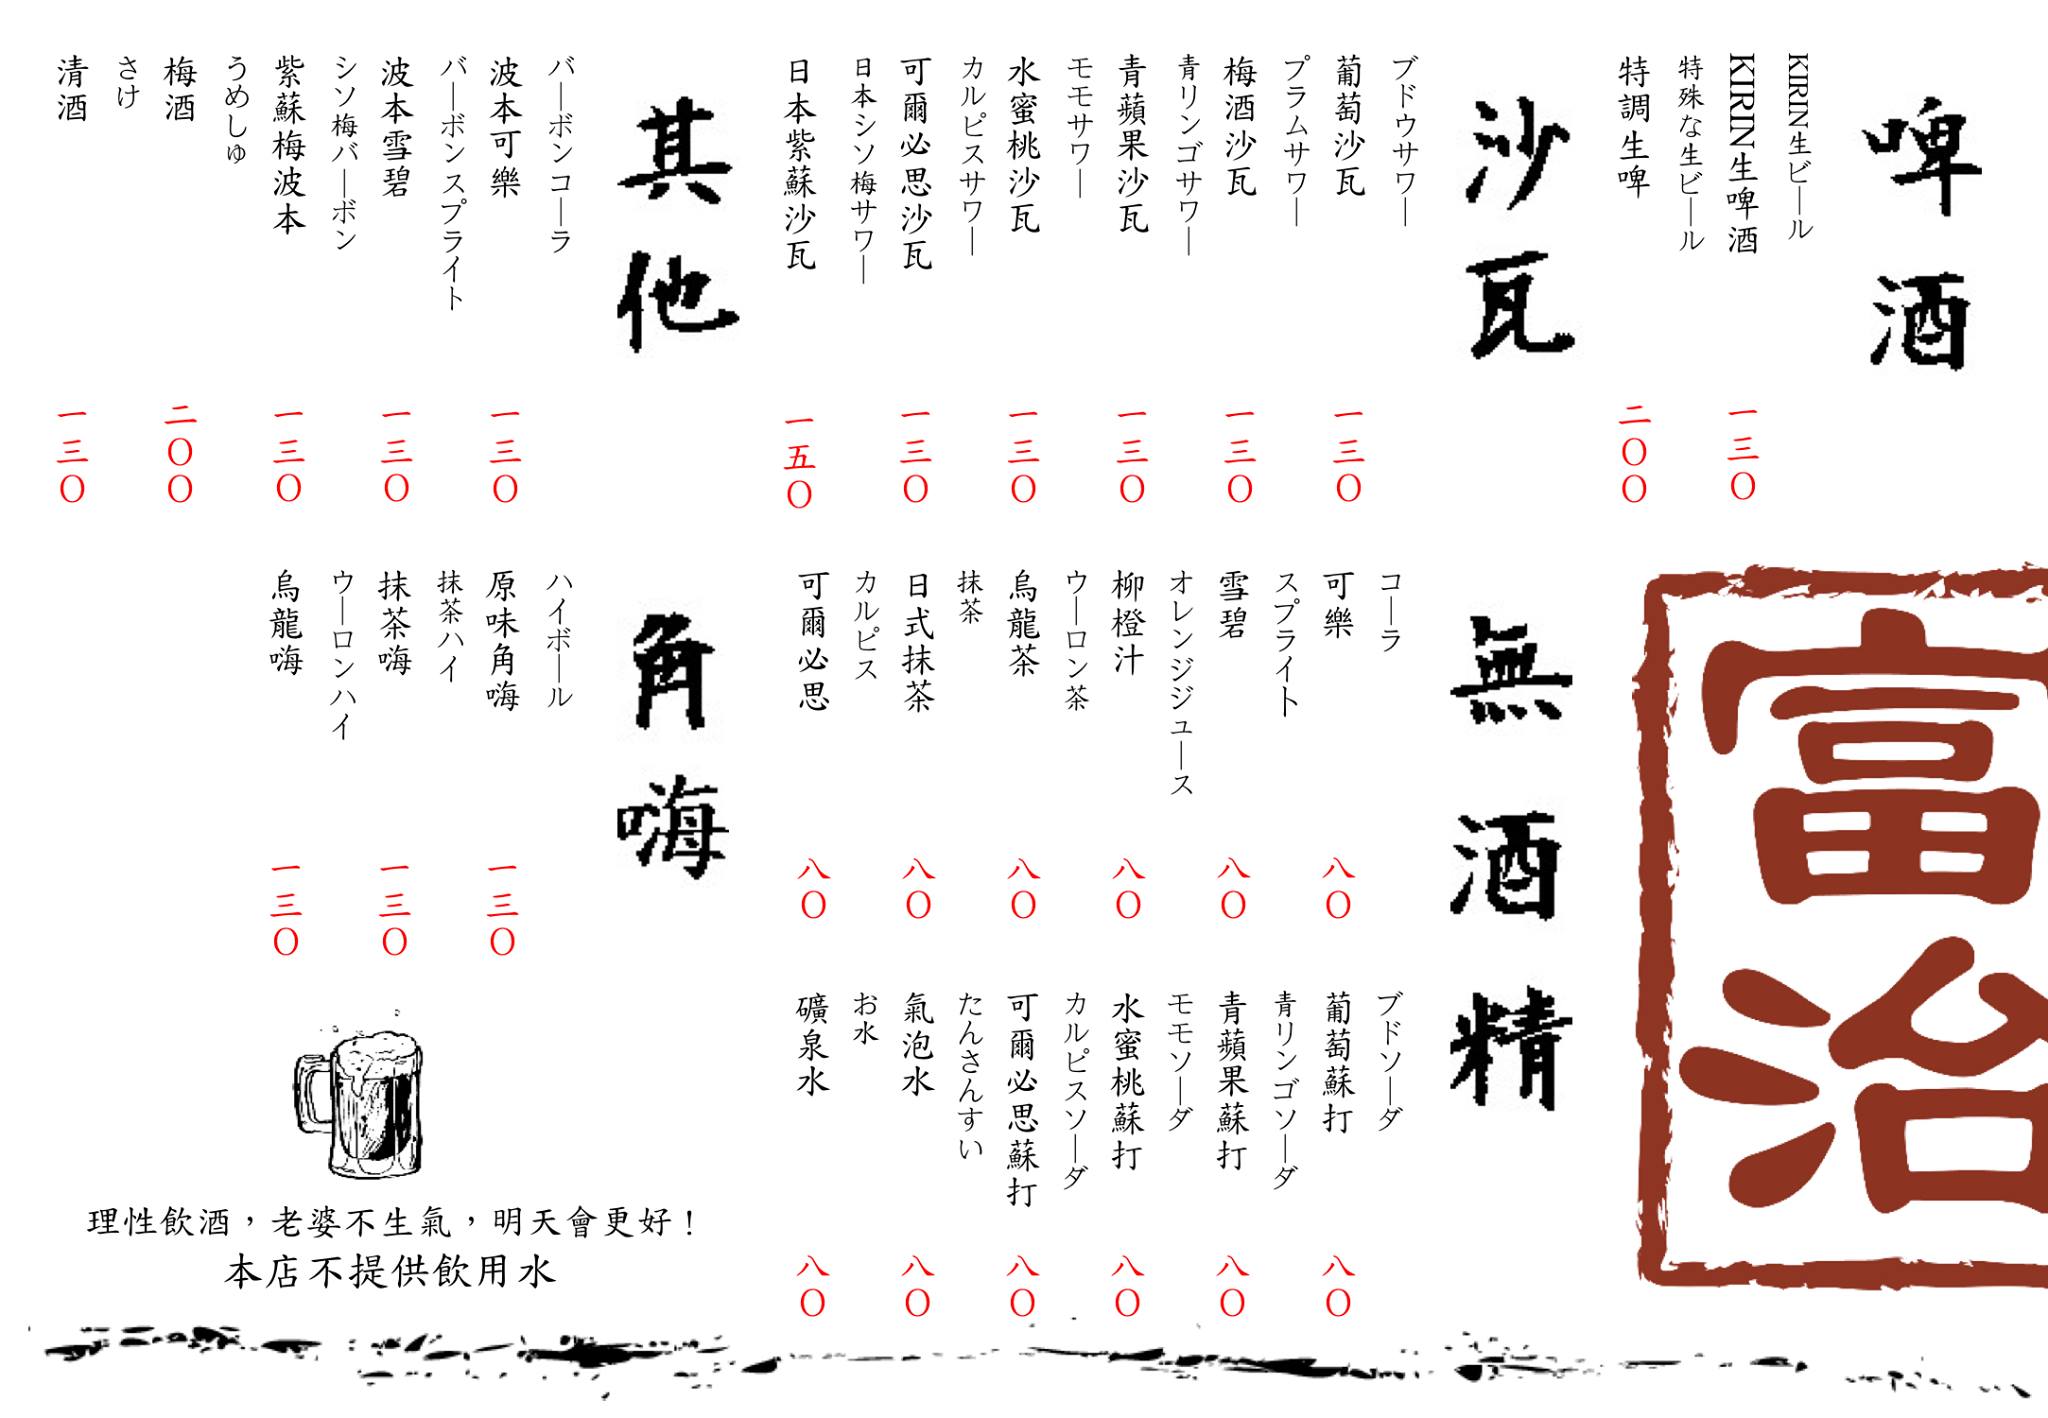 啤酒
KIRIN生ビール
KIRIN生啤酒
一三〇
特殊な生ビール
特調生啤
二〇〇
沙瓦
ブドウサワー
葡萄沙瓦
一三〇
プラムサワー
梅酒沙瓦
一三〇
青リンゴサワー
青蘋果沙瓦
一三〇
モモサワー
水蜜桃沙瓦
一三〇
カルピスサワー
可爾必思沙瓦
一三〇
日本シソ梅サワー
日本紫蘇沙瓦
一五〇
其他
バーボンコーラ
波本可樂
一三〇
バーボンスプライト
波本雪碧
一三〇
シソ梅バーボン
紫蘇梅波本
一三〇
うめしゅ
梅酒
二〇〇
さけ
清酒
一三〇
富治
無酒精
コーラ
可樂
八〇
スプライト
雪碧
八〇
オレンジジュース
柳橙汁
八〇
ウーロン茶
烏龍茶
八〇
抹茶
日式抹茶
八〇
カルピス
可爾必思
八〇
ブドソーダ
葡萄蘇打
八〇
青リンゴソーダ
青蘋果蘇打
八〇
モモソーダ
水蜜桃蘇打
八〇
カルピスソーダ
可爾必思蘇打
八〇
たんさんすい
氣泡水
八〇
お水
礦泉水
八〇
角嗨
ハイボール
原味角嗨
一三〇
抹茶ハイ
抹茶嗨
一三〇
ウーロンハイ
烏龍嗨
一三〇
理性飲酒，老婆不生氣，明天會更好！
本店不提供飲用水